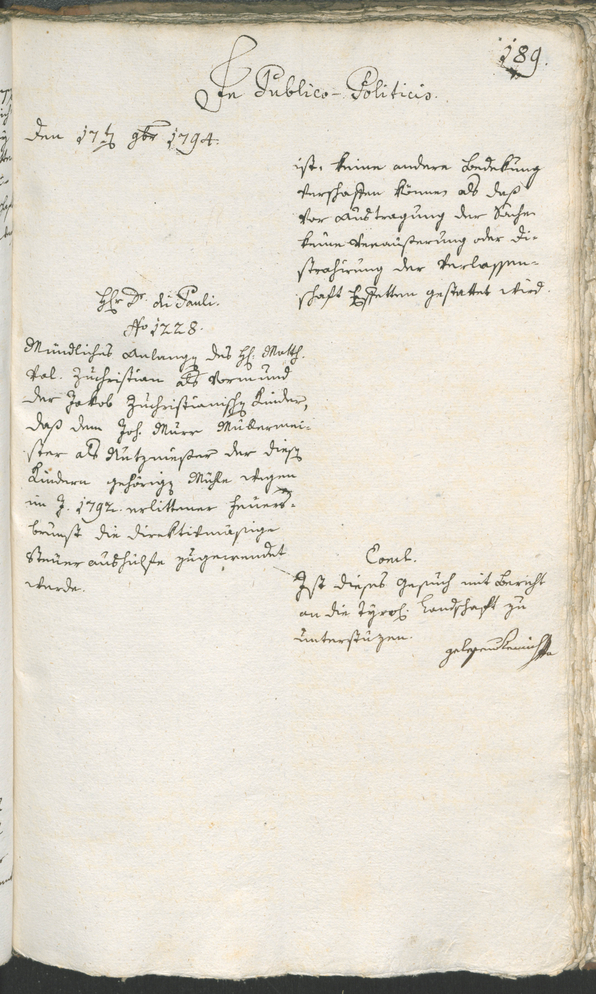 189.
In Publico-Politicis.
den 17t 9br 1794.
ist, keine andere Bedekung
verschaffen können als daß
vor Austragung der Sache
keine Veräußerung oder di-
strahirung der Verlassen-
schaft Effetten gestattet wird.
Hr Dr. di Pauli.
No 1228.
Mündliches Anlangen des H: Matth.
Val. Züchristian als Vormund
der Jakob Züchristianischen Kinder,
daß dem Joh. Mürr Müllermei-
ster als Nutznießer der diesen
Kindern gehörigen Mühle wegen
im J. 1792. erlittener Feuers-
brunst die direktivmäsige
Steueraushülfe zugewendet
werde.
Concl.
Ist dieses Gesuch mit Bericht
an die tyrol: Landschaft zu
unterstüzen.